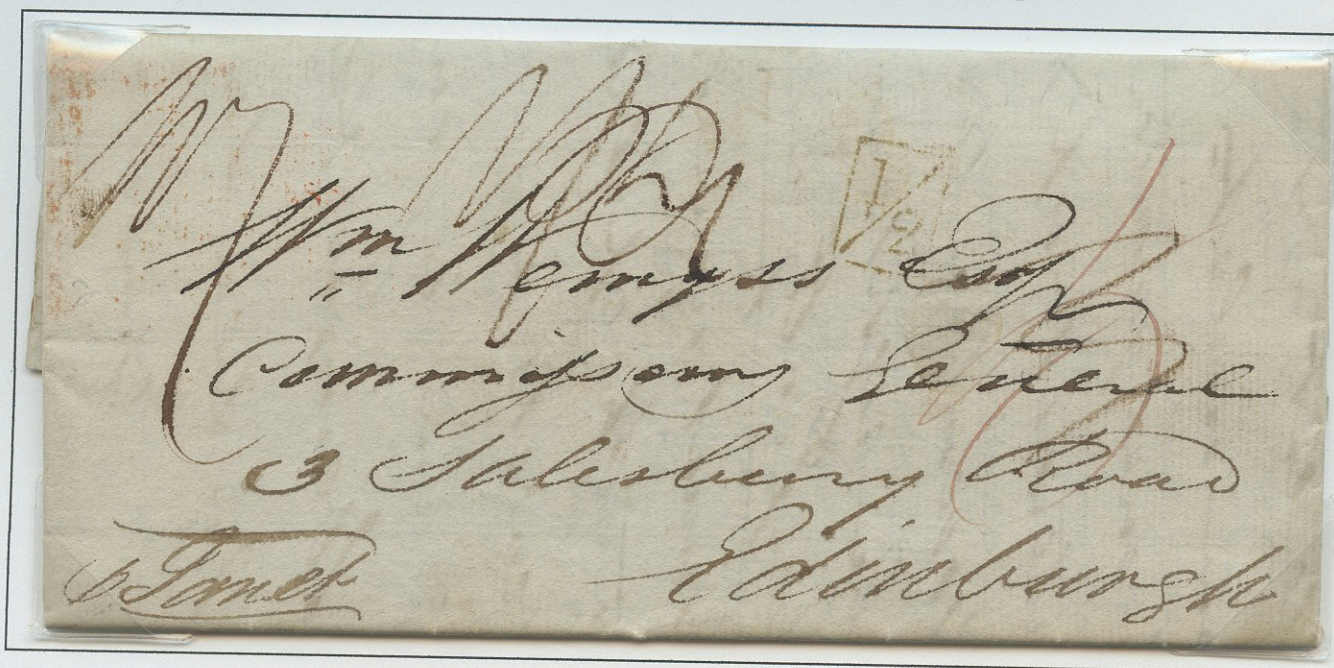 1/2
Wm Wemyss Esqr
Commissary General
3 Salisbury Road
Edinburgh
p Janet